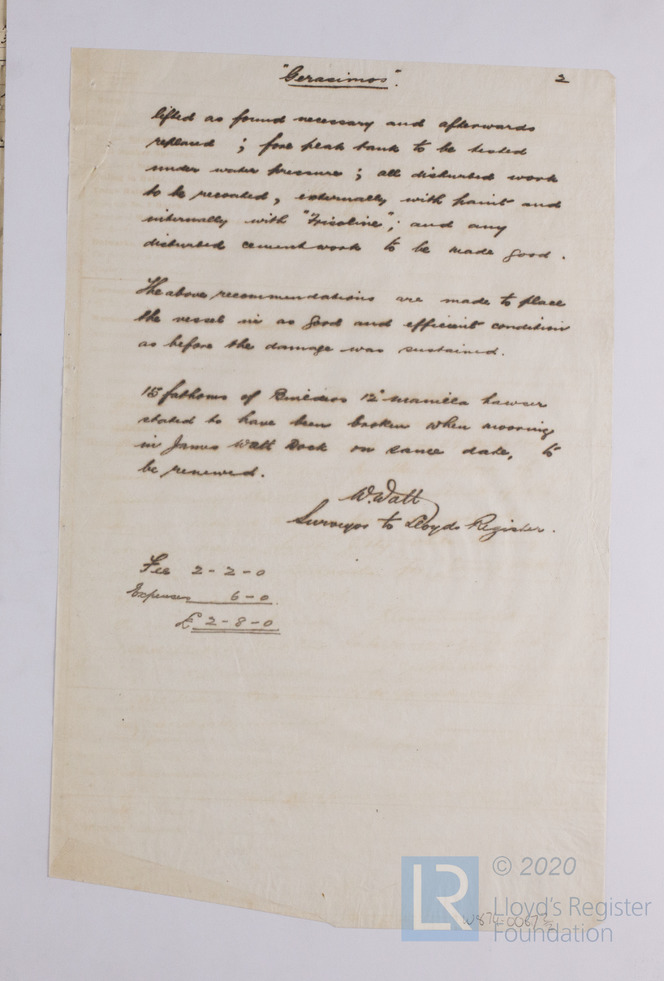 "Gerasimos". 2
lifted as found necessary and afterwards
replaced ; fore peak tank to be tested
under water pressure ; all disturbed work
to be recoated, externally with paint and
internally with "Tricoline"; and any
disturbed cement work to be made good.
The above recommendations are made to place
the vessel in as good and efficient condition
as before the damage was sustained.
15 fathoms of 12" manilla hawser
stated to have been broken when mooring
in James Watt Dock on same date, to
be renewed.
W. Watt
Surveyor to Lloyds Register.
Fee 2-2-0
Expenses 6-0
£ 2-8-0
© 2020
LR Lloyd's Register
Foundation